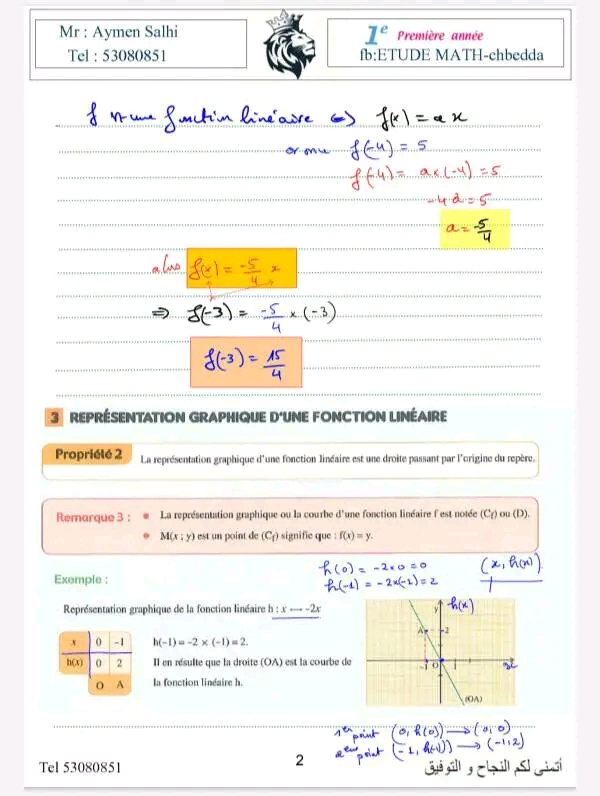 Mr : Aymen Salhi
Tel : 53080851
1e Première année
fb:ETUDE MATH-chbedda
f est une fonction linéaire ⇔ f(x) = ax
f(-4) = 5
f(-4) = a×(-4) = 5
-4a = 5
a = -5/4
alors f(x) = -5/4 x
⇒ f(-3) = -5/4 × (-3)
f(-3) = 15/4
3 REPRÉSENTATION GRAPHIQUE D'UNE FONCTION LINÉAIRE
Propriété 2 La représentation graphique d'une fonction linéaire est une droite passant par l'origine du repère.
Remarque 3 : • La représentation graphique ou la courbe d'une fonction linéaire f est notée (Cf) ou (D).
• M(x ; y) est un point de (Cf) signifie que : f(x) = y.
h(0) = -2×0 = 0
h(-1) = -2×(-1) = 2
(x, h(x))
Exemple :
Représentation graphique de la fonction linéaire h : x ⟼ -2x
x 0 -1
h(x) 0 2
O A
h(-1) = -2 × (-1) = 2.
Il en résulte que la droite (OA) est la courbe de
la fonction linéaire h.
y h(x)
A 2
-1 O 1 x
(OA)
1er point (0, h(0)) → (0, 0)
2eme point (-1, h(-1)) → (-1, 2)
Tel 53080851
2
أتمنى لكم النجاح و التوفيق